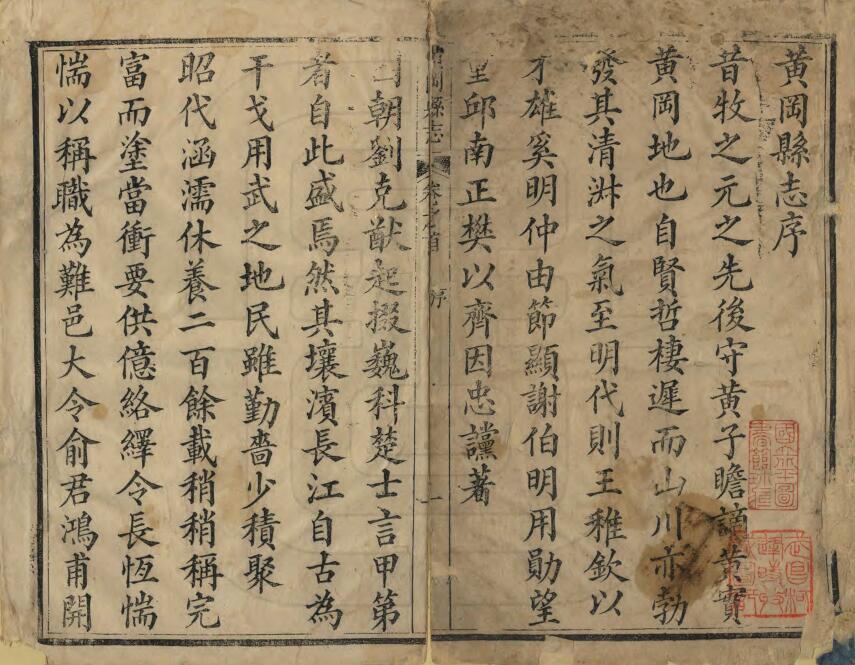 黄岡縣志序
昔牧之元之先後守黄子瞻謫黄實
黄岡地也自賢哲棲遲而山川亦勃
發其清淑之氣至明代則王稚欽以
才雄奚明仲由節顯謝伯明用勛望
邱南正樊以齊因忠讜著
岡縣志
卷之首
序
一
朝劉克猷起掇巍科楚士言甲第
者自此盛焉然其壤濱長江自古為
干戈用武之地民雖勤嗇少積聚
昭代涵濡休養二百餘載稍稍稱完
富而塗當衝要供億絡繹令長恆惴
惴以稱職為難邑大令俞君鴻甫開